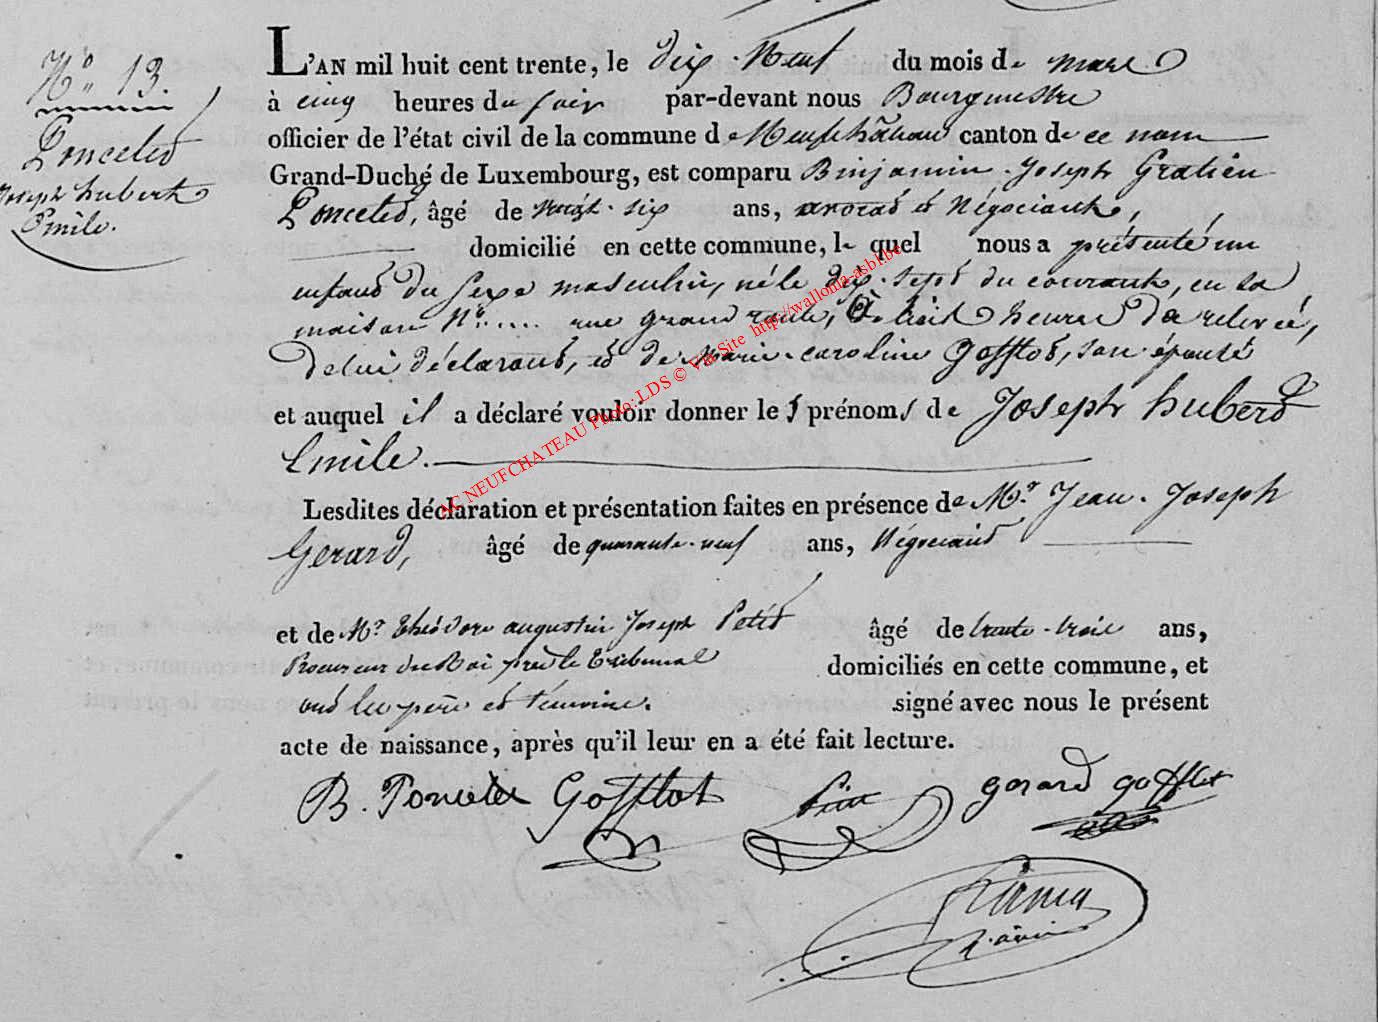 N.º 13.
Poncelet
Joseph hubert
Emile.
L'AN mil huit cent trente, le dix-Neuf du mois de mars
à cinq heures du soir par-devant nous Bourgmestre
officier de l'état civil de la commune de Neufchâteau canton de ce nom
Grand-Duché de Luxembourg, est comparu Binjamin-Joseph Gratien
Poncelet, âgé de vingt-six ans, avocat et Négociant,
domicilié en cette commune, le quel nous a présenté un
enfant du sexe masculin, né le dix-sept du courant, en sa
maison N.º .... rue grand route, à trois heures de relevée,
de lui déclarant, et de Marie-caroline Gofflot, son épouse
et auquel il a déclaré vouloir donner les prénoms de Joseph hubert
Emile.
Lesdites déclaration et présentation faites en présence de M.r Jean-Joseph
Gerard, âgé de quarante-neuf ans, Négociant
et de M.r théodore augustin Joseph Petit âgé de trente-trois ans,
Procureur du Roi près le tribunal domiciliés en cette commune, et
ont les père et témoins. signé avec nous le présent
acte de naissance, après qu'il leur en a été fait lecture.
B. Poncelet Gofflot Petit gerard gofflot
AC NEUFCHATEAU Photo: LDS © Via Site http://wallonia-asbl.be